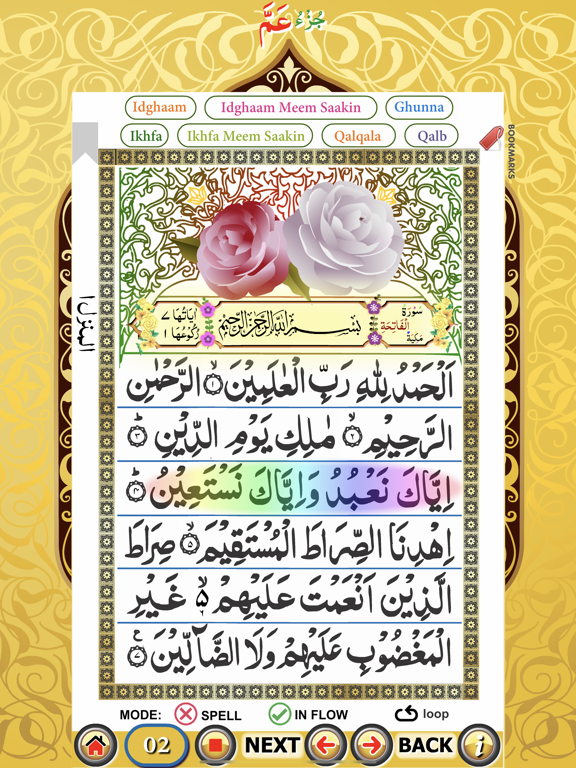 جُزْءُ عَمَّ
Idghaam Idghaam Meem Saakin Ghunna
Ikhfa Ikhfa Meem Saakin Qalqala Qalb
BOOKMARKS
المنزل ١
سُوْرَةُ الْفَاتِحَةِ مَكِّيَّةٌ
بِسْمِ اللّٰهِ الرَّحْمٰنِ الرَّحِيْمِ
اٰيَاتُهَا ٧
رُكُوْعُهَا ١
اَلْحَمْدُ لِلّٰهِ رَبِّ الْعٰلَمِيْنَ ۙ﴿١﴾ الرَّحْمٰنِ
الرَّحِيْمِ ۙ﴿٢﴾ مٰلِكِ يَوْمِ الدِّيْنِ ؕ﴿٣﴾
اِيَّاكَ نَعْبُدُ وَاِيَّاكَ نَسْتَعِيْنُ ؕ﴿٤﴾
اِهْدِنَا الصِّرَاطَ الْمُسْتَقِيْمَ ۙ﴿٥﴾ صِرَاطَ
الَّذِيْنَ اَنْعَمْتَ عَلَيْهِمْ ۙ۵ غَيْرِ
الْمَغْضُوْبِ عَلَيْهِمْ وَلَا الضَّآلِّيْنَ ۧ﴿٧﴾
MODE: SPELL IN FLOW loop
02 NEXT BACK i